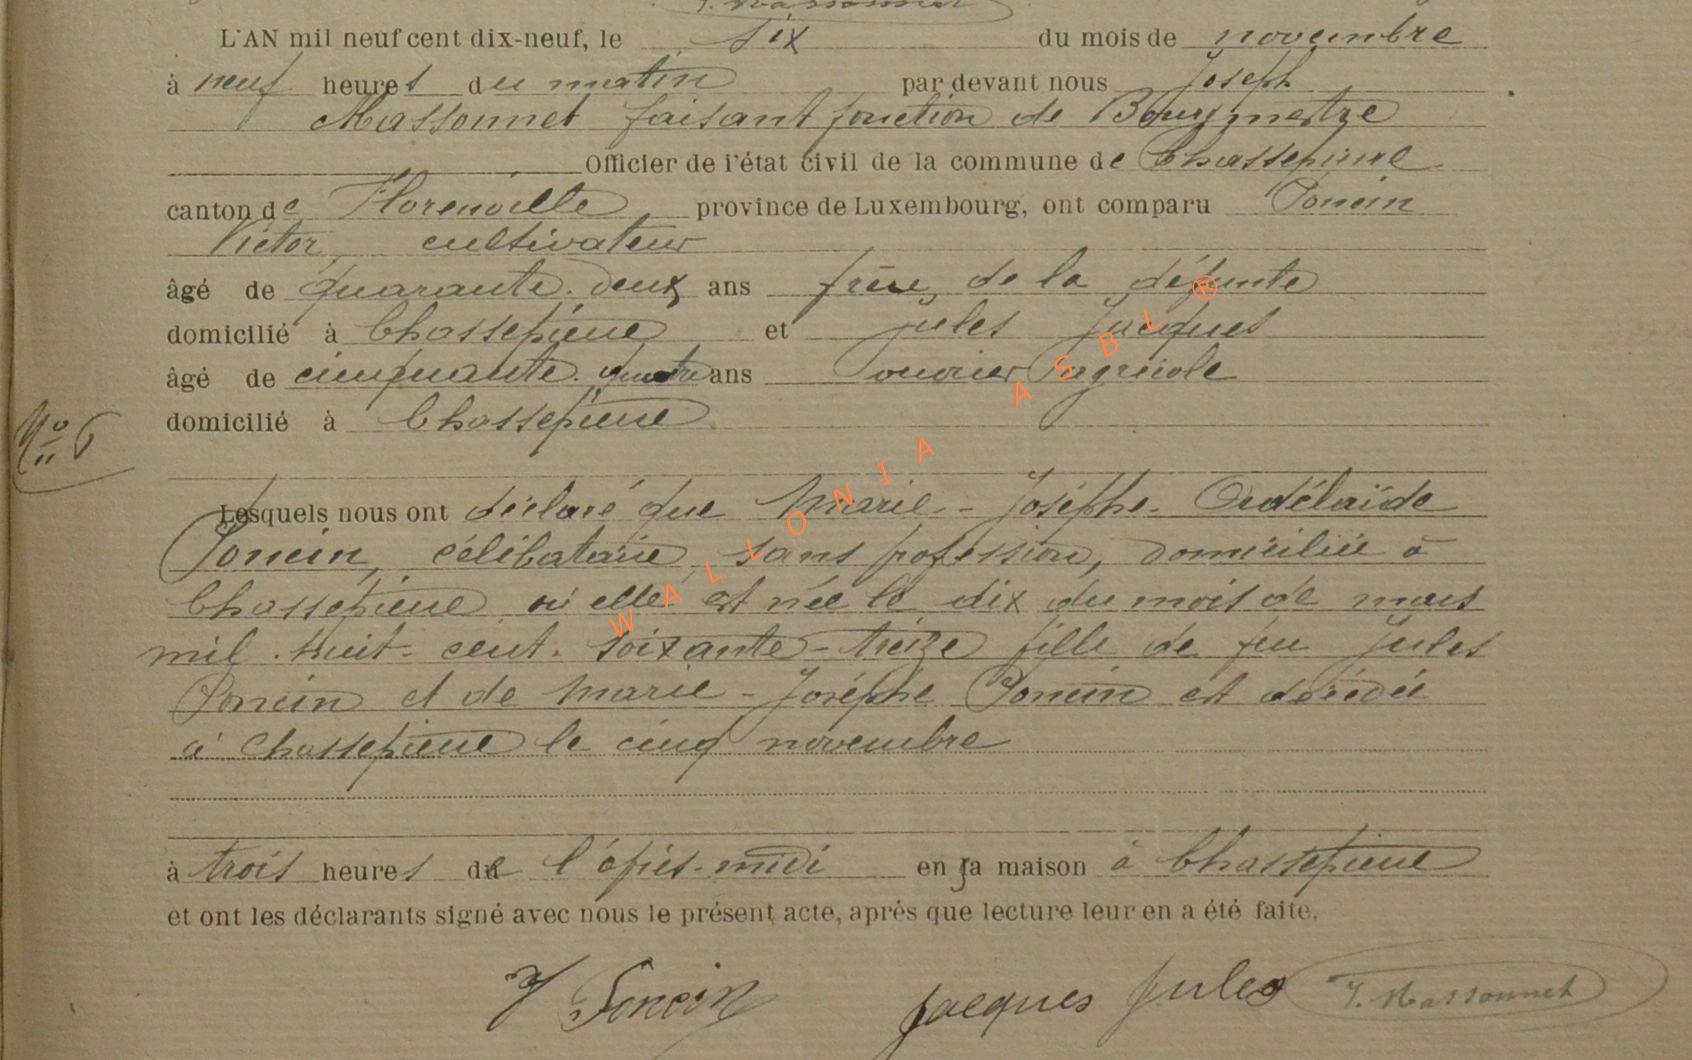 J. Massonnet
L'AN mil neuf cent dix-neuf, le six du mois de novembre
à neuf heures du matin par devant nous Joseph
Massonnet faisant fonction de Bourgmestre
Officier de l'état civil de la commune de Chassepierre
canton de Florenville province de Luxembourg, ont comparu Poncin
Victor, cultivateur
âgé de quarante-deux ans frère de la défunte
domicilié à Chassepierre et Jules Jacques
âgé de cinquante-quatre ans ouvrier agricole
domicilié à Chassepierre
No 6
Lesquels nous ont déclaré que Marie-Joséphe-Adélaïde
Poncin, célibataire, sans profession, domiciliée à
Chassepierre où elle est née le dix du mois de mars
mil-huit-cent-soixante-treize fille de feu Jules
Poncin et de Marie-Joséphe Poncin est décédée
à Chassepierre le cinq novembre
à trois heures de l'après-midi en sa maison à Chassepierre
et ont les déclarants signé avec nous le présent acte, après que lecture leur en a été faite.
V Poncin Jacques Jules J. Massonnet
WALLONIA ASBL ®